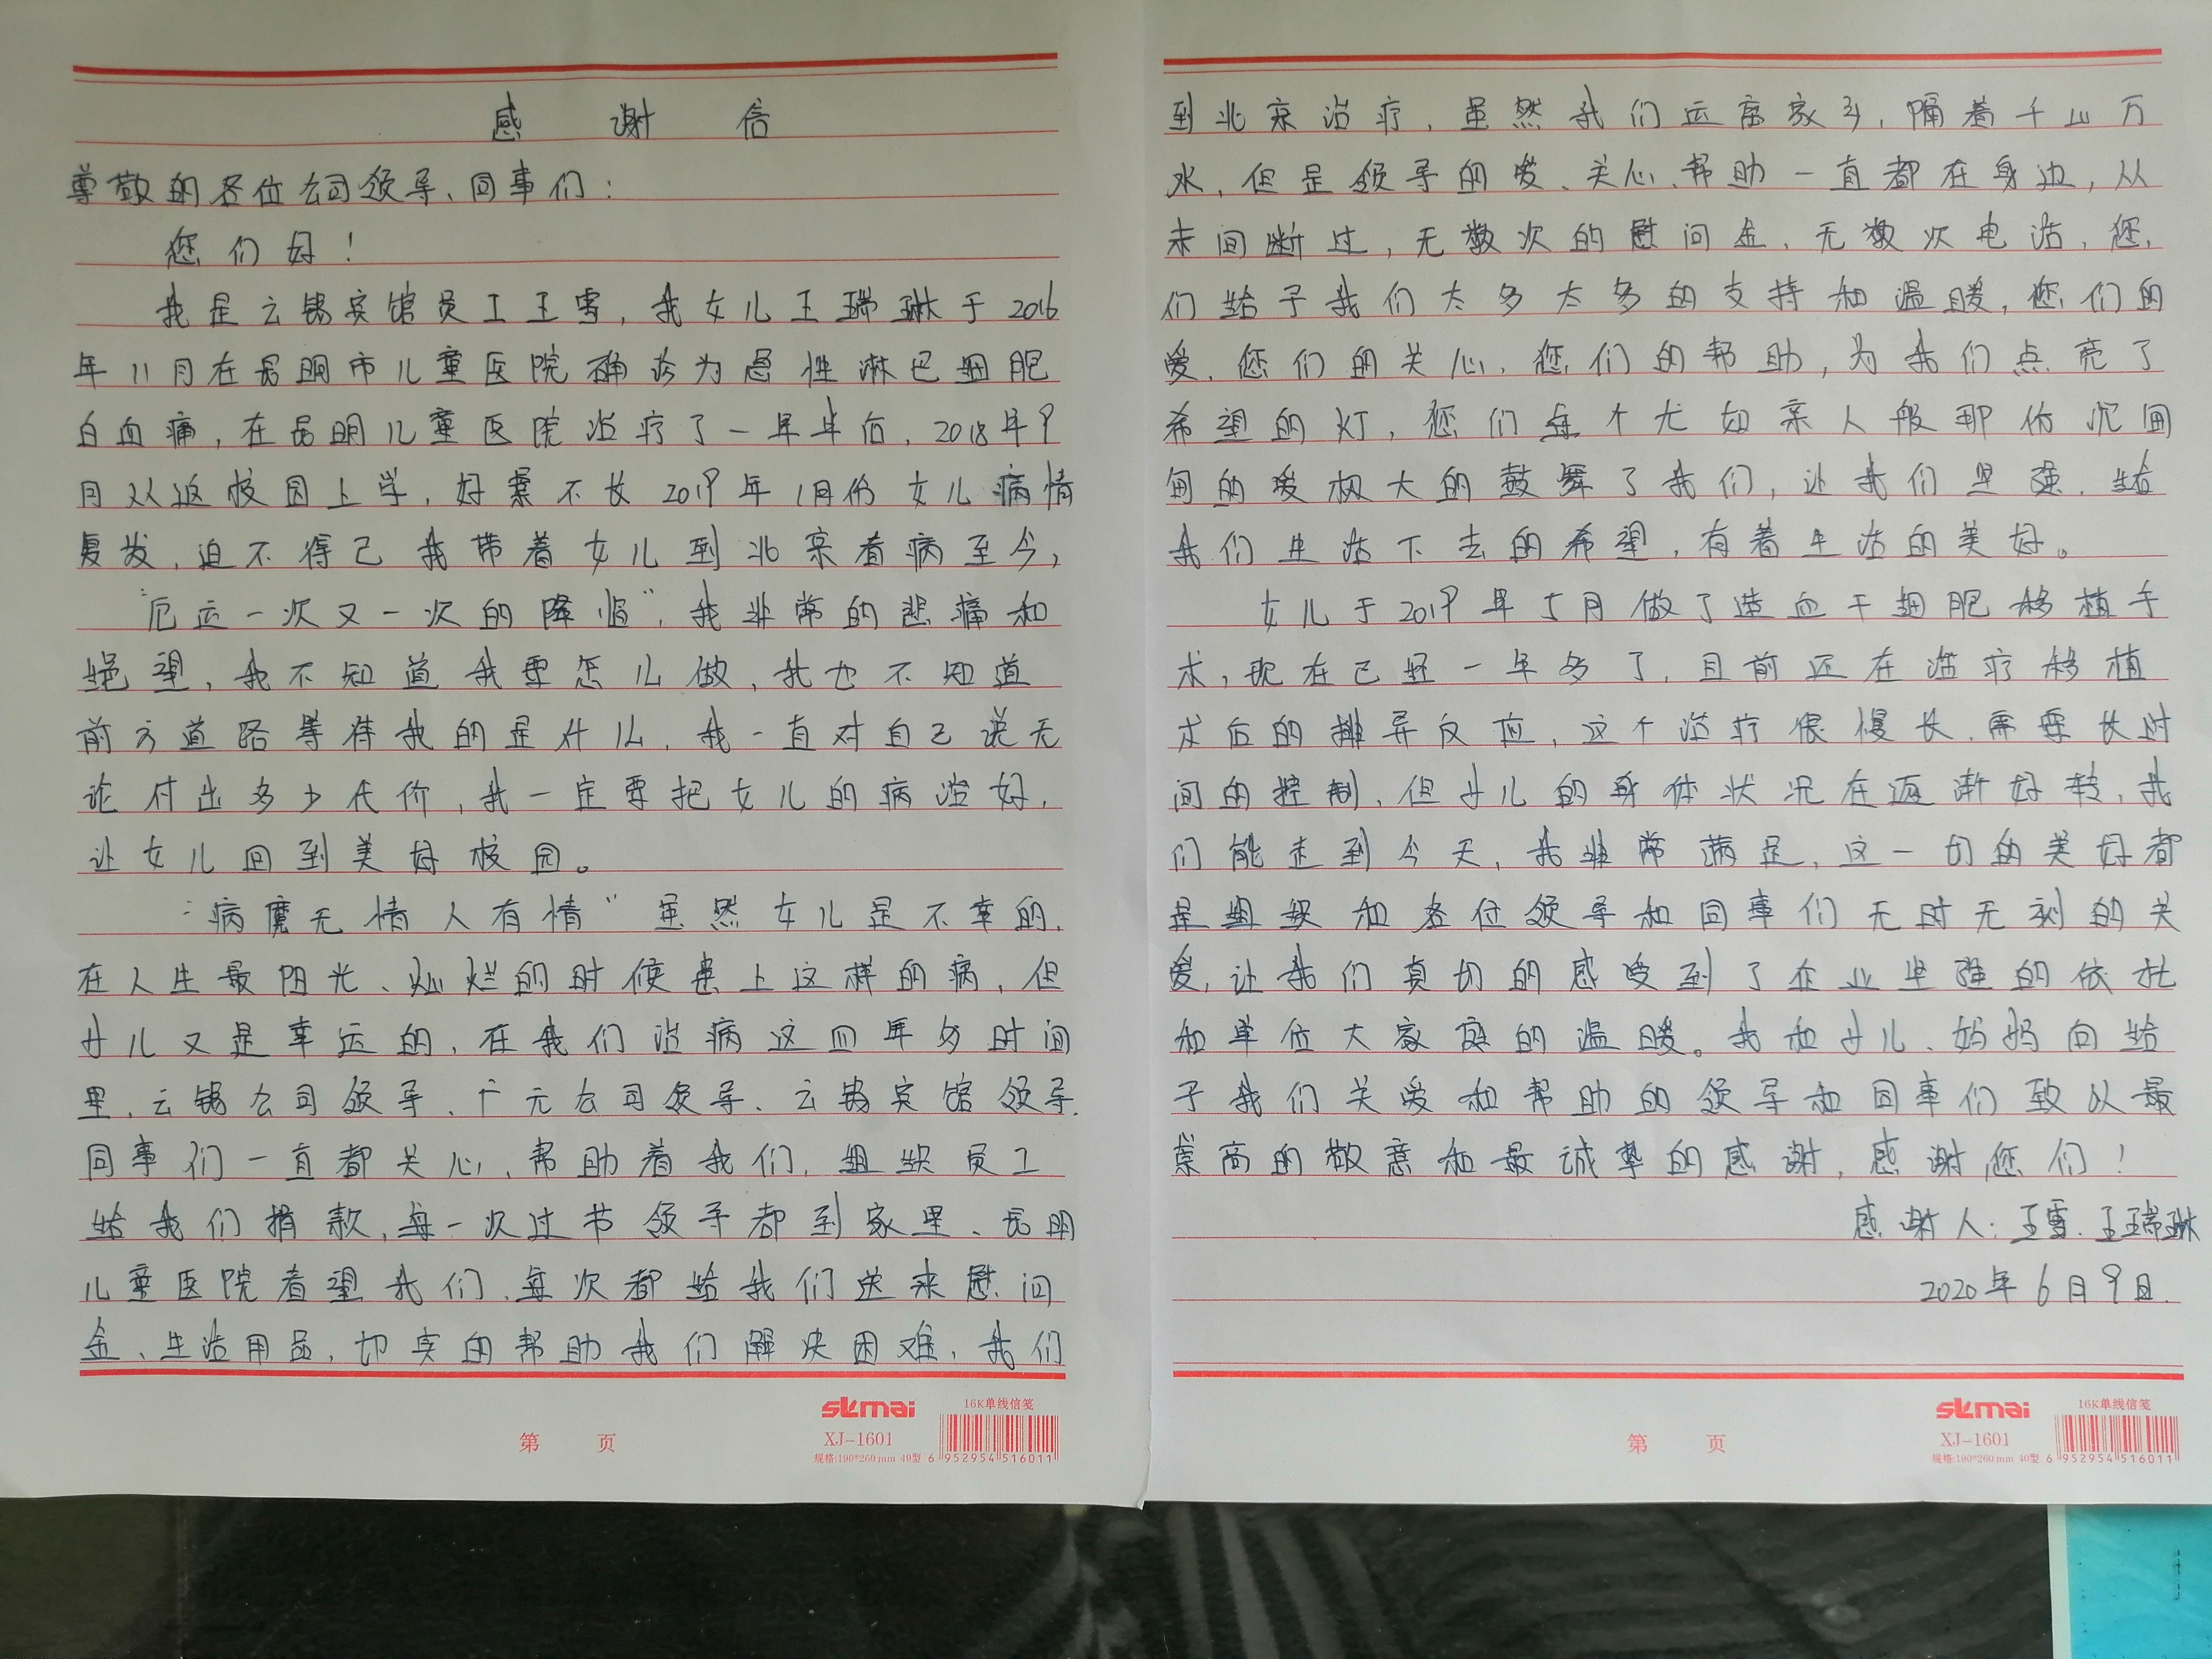 感谢信
尊敬的各位公司领导、同事们：
您们好！
我是云锡宾馆员工王雪，我女儿王瑞琳于2016
年11月在昆明市儿童医院确诊为急性淋巴细胞
白血病，在昆明儿童医院治疗了一年半后，2018年9
月从返校园上学，好景不长2019年1月份女儿病情
复发，迫不得已我带着女儿到北京看病至今，
“厄运一次又一次的降临”，我非常的悲痛和
绝望，我不知道我要怎么做，我也不知道
前方道路等待我的是什么，我一直对自己说无
论付出多少代价，我一定要把女儿的病治好，
让女儿回到美好校园。
“病魔无情人有情”虽然女儿是不幸的，
在人生最阳光、灿烂的时候患上这样的病，但
女儿又是幸运的，在我们治病这四年多时间
里，云锡公司领导、广元公司领导、云锡宾馆领导、
同事们一直都关心、帮助着我们，组织员工
给我们捐款，每一次过节领导都到家里、昆明
儿童医院看望我们，每次都给我们送来慰问
金、生活用品，切实的帮助我们解决困难，我们
第 页
stkmai
XJ-1601
规格:190*260mm 40型
16K单线信笺
6 952954 516011
到北京治疗，虽然我们远离家乡，隔着千山万
水，但是领导的爱、关心、帮助一直都在身边，从
未间断过，无数次的慰问金、无数次电话，您
们给予我们太多太多的支持和温暖，您们的
爱，您们的关心，您们的帮助，为我们点亮了
希望的灯，您们每个尤如亲人般那份沉甸
甸的爱极大的鼓舞了我们，让我们坚强，给
我们生活下去的希望，有着生活的美好。
女儿于2019年5月做了造血干细胞移植手
术，现在已经一年多了，目前还在治疗移植
术后的排异反应，这个治疗很慢长，需要长时
间的控制，但女儿的身体状况在逐渐好转，我
们能走到今天，我非常满足，这一切的美好都
是组织和各位领导和同事们无时无刻的关
爱，让我们真切的感受到了企业坚强的依托
和单位大家庭的温暖。我和女儿、妈妈向给
予我们关爱和帮助的领导和同事们致以最
崇高的敬意和最诚挚的感谢，感谢您们！
感谢人：王雪、王瑞琳
2020年6月9日
第 页
stkmai
XJ-1601
规格:190*260mm 40型
16K单线信笺
6 952954 516011